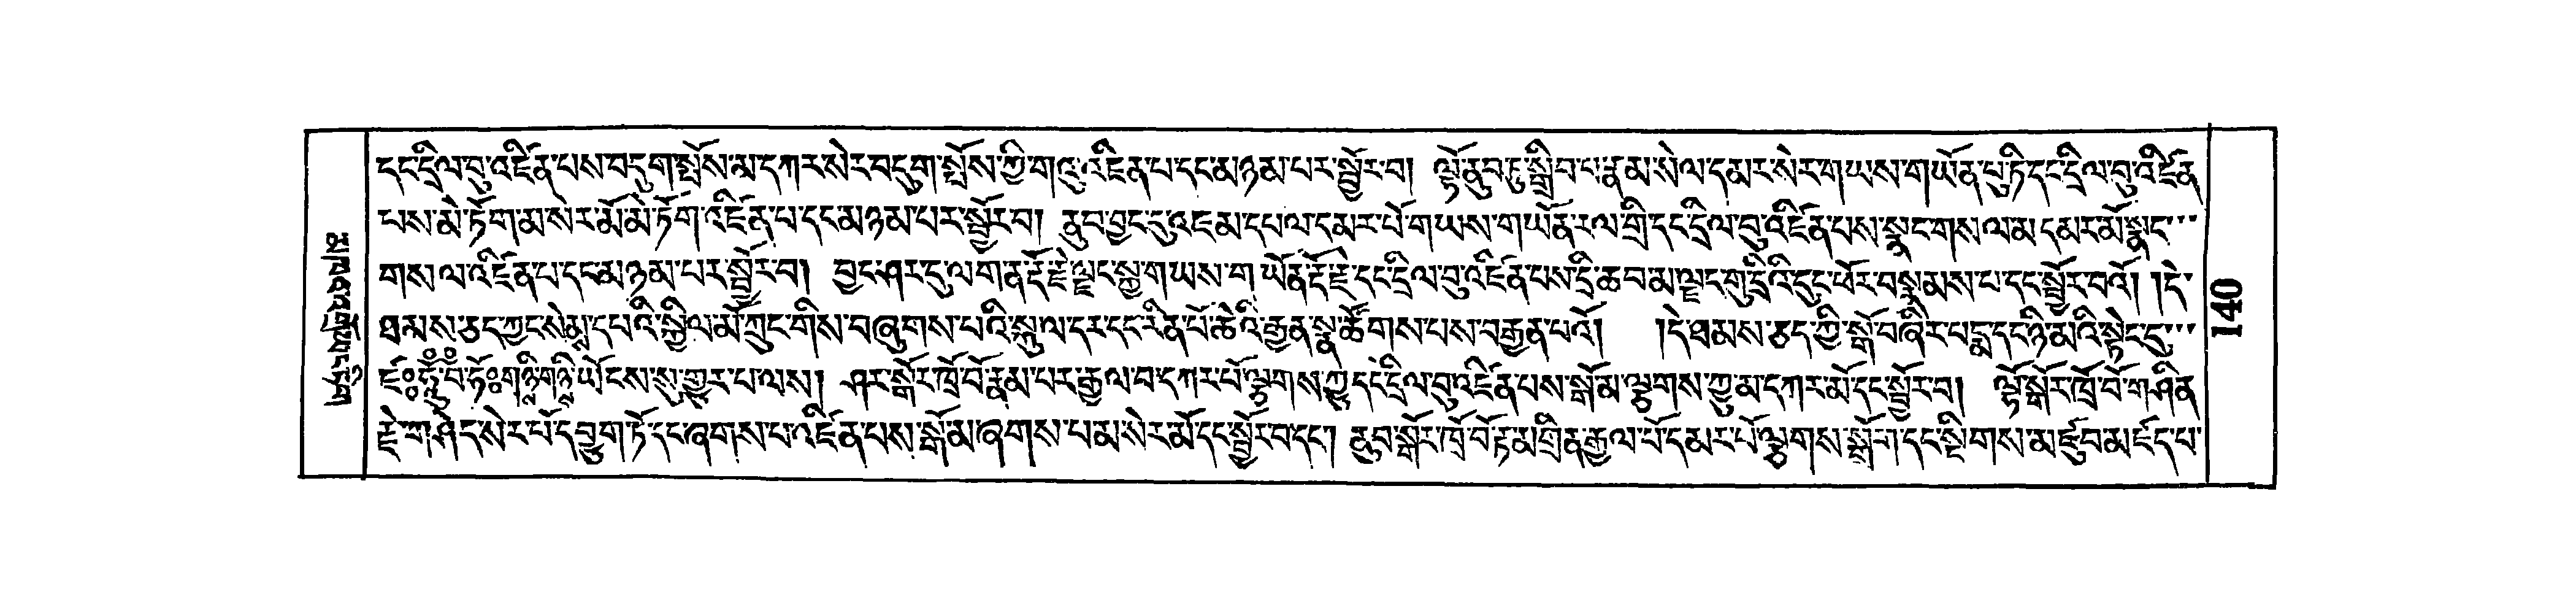 དང་དྲིལ་བུ་འཛིན་པས་བདུག་སྤོས་མ་དཀར་སེར་བདུག་སྤོས་ཀྱི་གཟུ་འཛིན་པ་དང་མཉམ་པར་སྦྱོར་བ། ལྷོ་ནུབ་ཏུ་སྒྲིབ་པ་རྣམ་སེལ་དམར་སེར་གཡས་གཡོན་པུ་ཏི་དང་དྲིལ་བུ་འཛིན
པས་མེ་ཏོག་མ་སེར་མོ་མེ་ཏོག་འཛིན་པ་དང་མཉམ་པར་སྦྱོར་བ། ནུབ་བྱང་དུ་འཇམ་དཔལ་དམར་པོ་གཡས་གཡོན་རལ་གྲི་དང་དྲིལ་བུ་འཛིན་པས་སྣང་གསལ་མ་དམར་མོ་སྣང་་་
གསལ་འཛིན་པ་དང་མཉམ་པར་སྦྱོར་བ། བྱང་ཤར་དུ་ལག་ན་རྡོ་རྗེ་ལྗང་སྐྱ་གཡས་གཡོན་རྡོ་རྗེ་དང་དྲིལ་བུ་འཛིན་པས་དྲི་ཆབ་མ་ལྗང་གུ་དྲིའི་དུང་ཕོར་བསྣམས་པ་དང་སྦྱོར་བའོ། །དེ་
ཐམས་ཅད་ཀྱང་སེམྤ་དཔའི་སྐྱིལ་མོ་ཀྲུང་གིས་བཞུགས་པའི་སྐུ་ལ་དར་དང་རིན་པོ་ཆེའི་རྒྱན་སྣ་ཚོགས་པས་བརྒྱན་པའོ། །དེ་ཐམས་ཅད་ཀྱི་སྒོ་བཞིར་པདྨ་དང་ཉི་མའི་སྟེང་དུ་་་
ཛཿ་ཧཱུྃ་བཾ་ཧོཿ་གཉི་གཉི་ཡོངས་སུ་གྱུར་པ་ལས། ཤར་སྒོར་ཁྲོ་བོ་རྣམ་པར་རྒྱལ་བ་དཀར་པོ་ལྕགས་ཀྱུ་དང་དྲིལ་བུ་འཛིན་པས་སྒོ་མ་ལྕགས་ཀྱུ་མ་དཀར་མོ་དང་སྦྱོར་བ། ལྷོ་སྒོར་ཁྲོ་བོ་གཤིན
རྗེ་གཤེད་སེར་པོ་དབྱུག་ཏོ་དང་ཞགས་པ་འཛིན་པས་སྒོ་མ་ཞགས་པ་མ་སེར་མོ་དང་སྦྱོར་བ་དང། ནུབ་སྒོར་ཁྲོ་བོ་རྟ་མགྲིན་རྒྱལ་པོ་དམར་པོ་ལྕགས་སྒྲོག་དང་སྡིགས་མཛུབ་མཛད་པ་
041